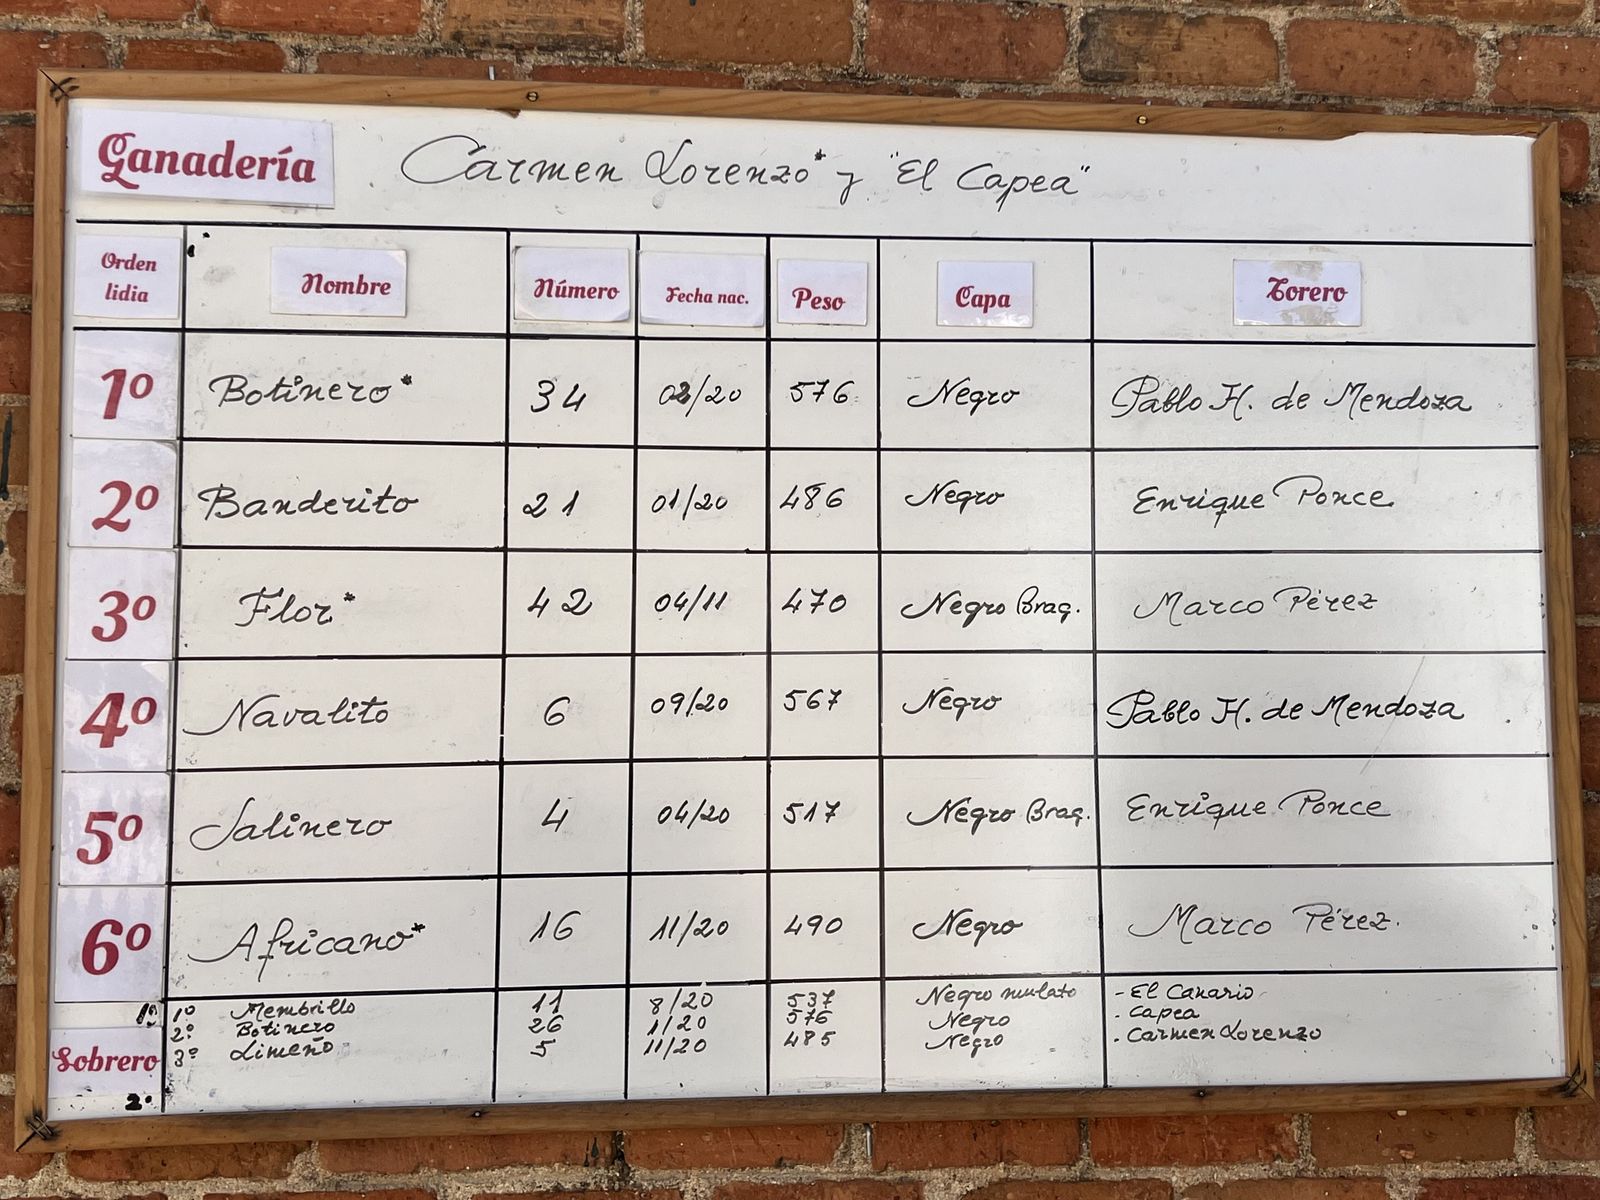 Ganadería Carmen Lorenzo* y "El Capea"
Orden lidia Nombre Número Fecha nac. Peso Capa Torero
1º Botinero* 34 02/20 576 Negro Pablo H. de Mendoza
2º Banderito 21 01/20 486 Negro Enrique Ponce
3º Flor* 42 04/11 470 Negro Brag. Marco Pérez
4º Navalito 6 09/20 567 Negro Pablo H. de Mendoza
5º Salinero 4 04/20 517 Negro Brag. Enrique Ponce
6º Africano* 16 11/20 490 Negro Marco Pérez.
Sobrero
1º 1º Membrillo 11 8/20 537 Negro mulato - El Canario
2º Botinero 26 1/20 576 Negro . Capea
3º Limeño 5 11/20 485 Negro . Carmen Lorenzo
2º